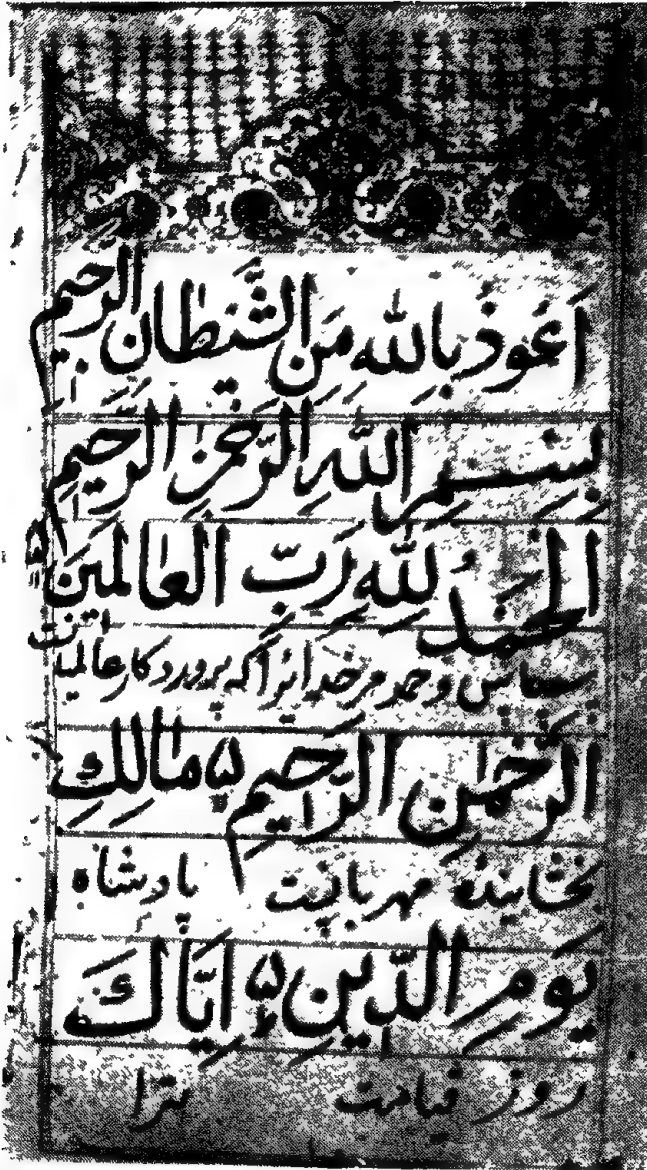 اَعُوذُ بِاللهِ مِنَ الشَّيْطٰانِ الرَّجِيمِ
بِسْمِ اللهِ الرَّحْمٰنِ الرَّحِيمِ
الْحَمْدُ لِلّٰهِ رَبِّ الْعٰالَمِينَ ۵
سپاس و حمد مر خدایرا که پروردکار عالمیانست
الرَّحْمٰنِ الرَّحِيمِ ۵ مٰالِكِ
بخشاینده مهربانیست پادشاه
يَوْمِ الدِّينِ ۵ اِيَّاكَ
روز قیامت ترا